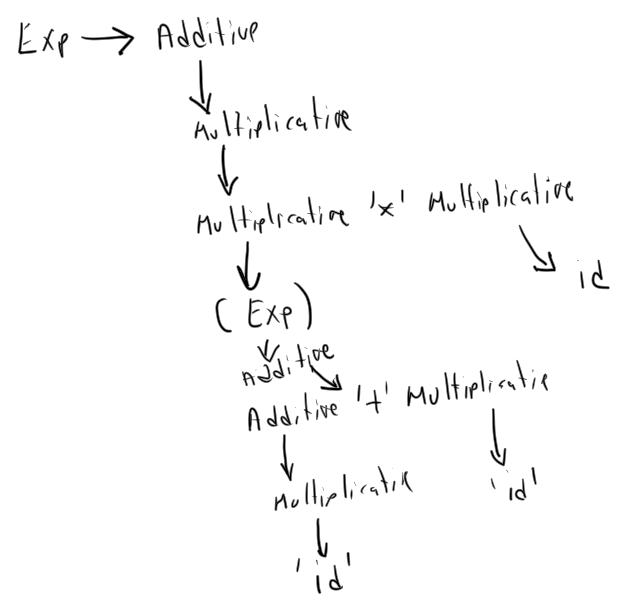 Exp → Additive
Multiplicative
Multiplicative 'x' Multiplicative
id
( Exp )
Additive
Additive '+' Multiplicative
Multiplicative 'id'
'id'